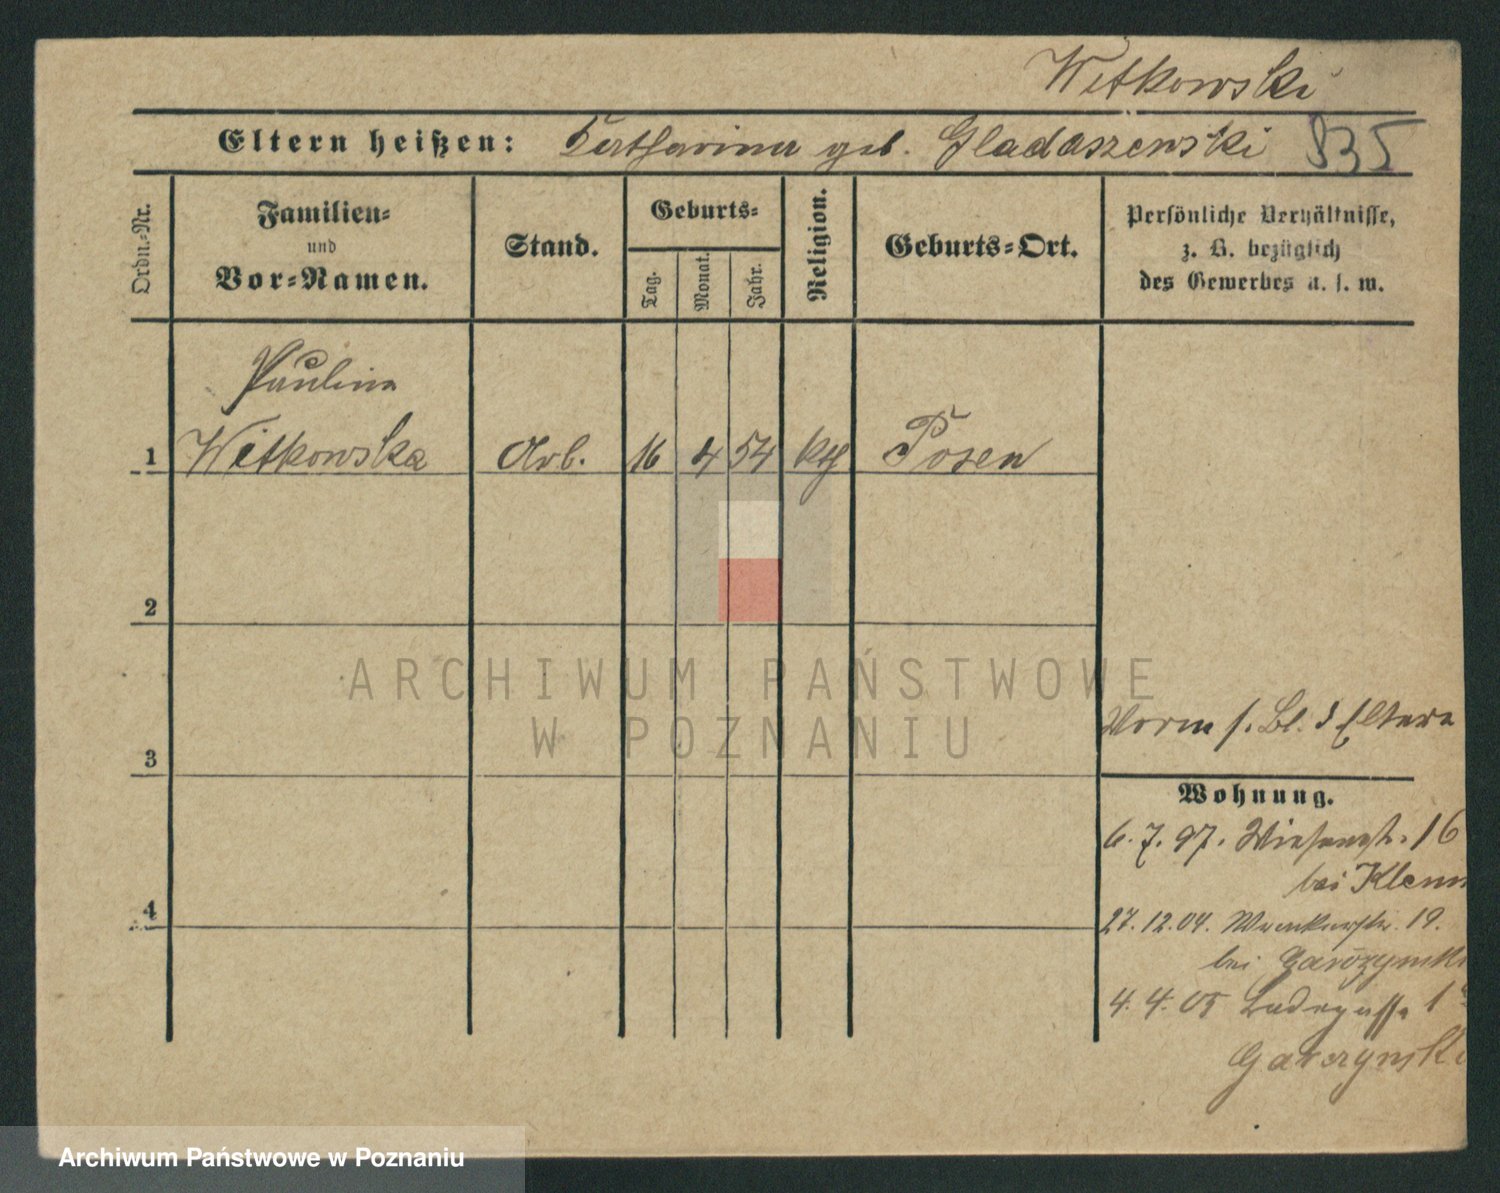 Witkowski
Eltern heißen: Katharina geb. Gladaszewski 835
Ordn.-Nr.
Familien-
und
Vor-Namen.
Stand.
Geburts-
Tag.
Monat.
Jahr.
Religion.
Geburts-Ort.
Persönliche Verhältnisse,
z. B. bezüglich
des Gewerbes u. s. w.
Paulina
1 Witkowska Arb. 16 4 54 kth Posen
2
3
4
Vorm s. Bl. d Eltern
Wohnung.
6. 7. 97. Wiesenstr. 16
bei Klemm
27. 12. 04. 19.
bei
4. 4. 05 1
Garczynski
ARCHIWUM PAŃSTWOWE
W POZNANIU
Archiwum Państwowe w Poznaniu